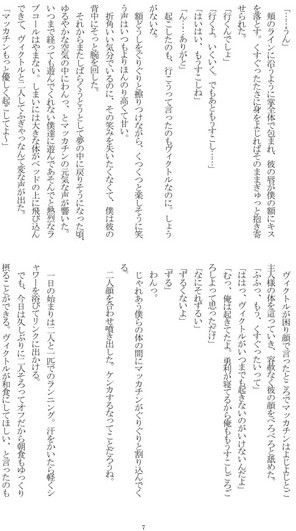 「……うん」
頬のラインに沿うように掌全体で包まれ、彼の唇が僕の額にキス
を落とす。くすぐったさに身をよじればそのままぎゅっと抱き寄
せられた。
「行くんでしょ」
「行くよ。いくいく、でもあともうすこし……」
「はいはい、もうすこしね」
「ん……ありがと」
　起こしたのも、行こうって言ったのもヴィクトルなのに。しょう
がないな。
　額どうしをぐりぐりと擦りつけながら、くつくつと楽しそうに笑
う声はいつもよりほんのり高くて甘い。
　折角いい気分でいるのに、その笑みを失いたくなくて、僕は彼の
背中にそっと腕を回した。
　それからまたしばらくうとうとして夢の中に戻りそうになった頃、
ゆるやかな空気の中にわんっ、とマッカチンの元気な声が響いた。
いつまで経っても遊んでくれない僕達に遊んであそんでと熱烈なラ
ブコールはやまない。しまいには大きな体がベッドの上に飛び込ん
できて、ヴィクトルと二人してふぎゃってなんて変な声が出た。
「マッカチンもっと優しく起こしてよー」
　ヴィクトルが困り顔で言ったところでマッカチンはよじよじとご
主人様の体を這っていき、容赦なく彼の顔をぺろぺろと舐めた。
「ふふっ、もう、くすぐったいって」
「ははっ、ヴィクトルがいつまでも起きないのがいけないんだよ」
「むっ、俺は起きてたよ。勇利が寝てるから俺ももうすこしごろご
ろしよって思っただけ」
「なにそれずるい」
「ずるくないよ」
「ずる」
　わんっ。
　じゃれあう僕らの体の間にマッカチンがぐりぐりと割り込んでく
る。
　二人顔を合わせ噴き出した。ケンカするなってことだろうね。
　一日の始まりは二人と一匹でのランニング。汗をかいたら軽くシ
ャワーを浴びてリンクに出かける。
　でも、今日は久しぶりに二人そろってオフだから朝食もゆっくり
摂ることができる。ヴィクトルが和食にしてほしい、と言ったのも
7